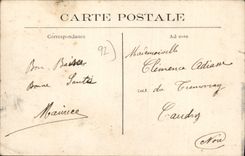 CARTE POSTALE
Correspondance
Adresse
92
Bon Baiser
Bonne Santé
Maurice
Mademoiselle
Clémence Adiane
rue du
Caudry
(Nord)